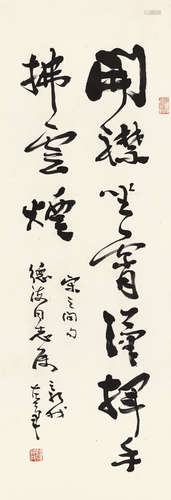 開襟坐霄漢揮手
拂雲煙
宋之問句
德海同志屬